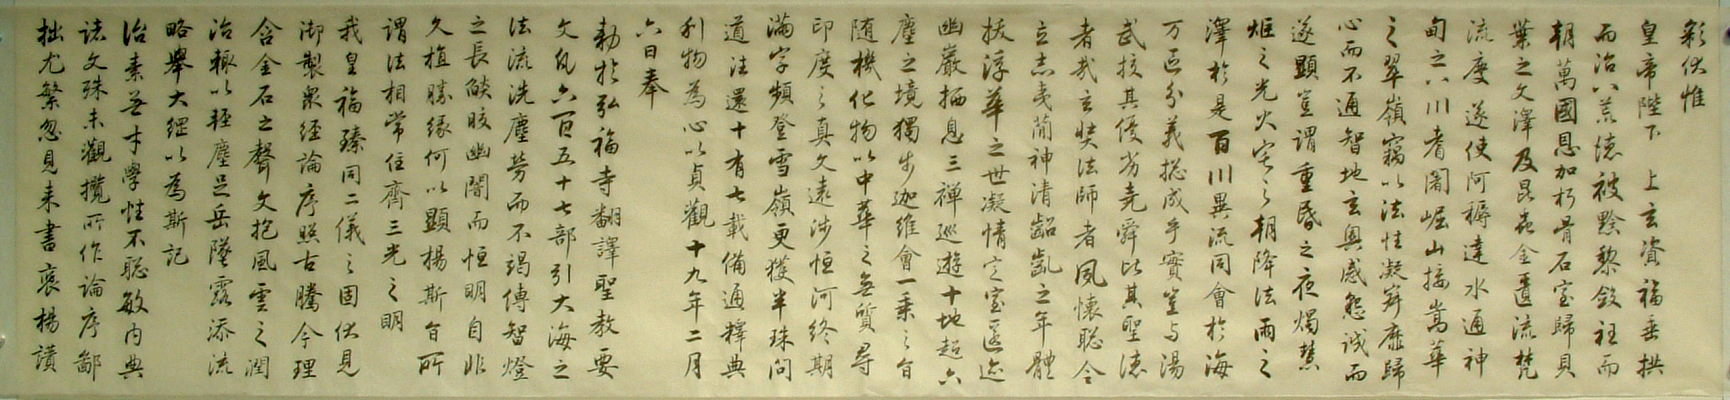 彩伏惟
皇帝陛下 上玄資福垂拱
而治八荒德被黔黎斂衽而
朝萬國恩加朽骨石室歸貝
葉之文澤及昆蟲金匱流梵
流慶遂使阿耨達水通神
甸之八川耆闍崛山接嵩華
之翠嶺竊以法性凝寂靡歸
心而不通智地玄奧感懇誠而
遂顯豈謂重昏之夜燭慧
炬之光火宅之朝降法雨之
澤於是百川異流同會於海
万區分義總成乎實豈與湯
武挍其優劣堯舜比其聖德
者哉玄奘法師者夙懷聰令
立志夷簡神清齠齔之年體
拔浮華之世凝情定室匿迹
幽巖栖息三禪巡遊十地超六
塵之境獨步迦維會一乘之旨
随機化物以中華之無質尋
印度之真文遠涉恒河終期
滿字頻登雪嶺更獲半珠問
道法還十有七載備通釋典
利物為心以貞觀十九年二月
六日奉
勅於弘福寺翻譯聖教要
文凡六百五十七部引大海之
法流洗塵勞而不竭傳智燈
之長燄皎幽闇而恒明自非
久植勝緣何以顯揚斯旨所
謂法相常住齊三光之明
我皇福臻同二儀之固伏見
御製衆經論序照古騰今理
含金石之聲文抱風雲之潤
治輙以軽塵足岳墜露添流
略舉大綱以為斯記
治素無才學性不聰敏内典
諸文殊未觀攬所作論序鄙
拙尤繁忽見来書褒揚讃